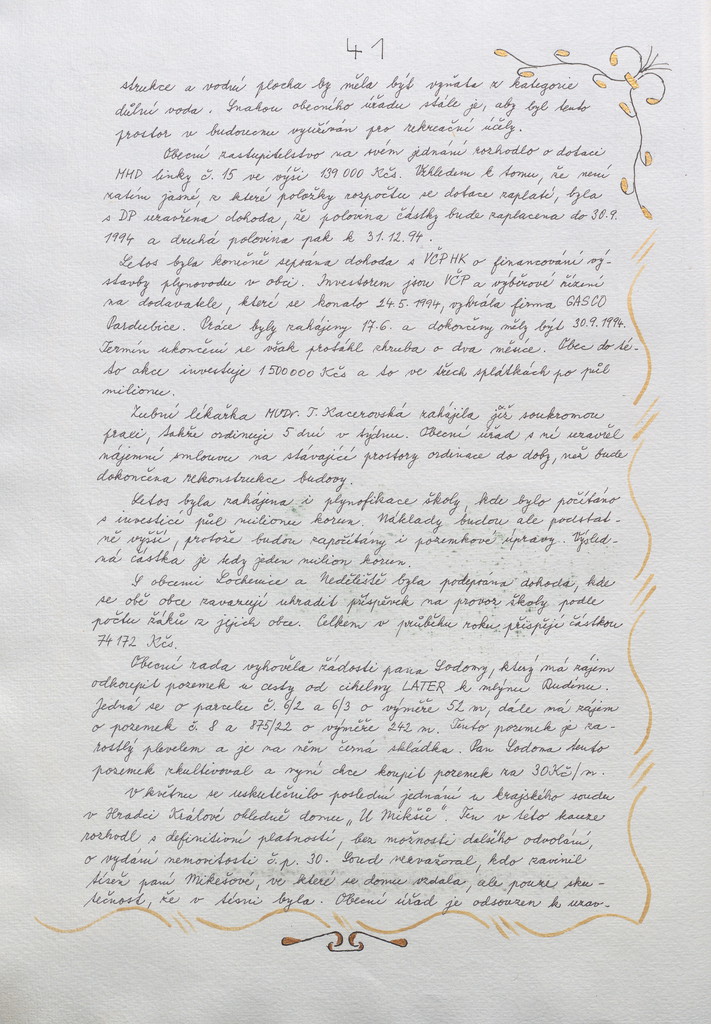 41
strukce a vodní plocha by měla být vyňata z kategorie
důlní voda. Snahou obecního úřadu stále je, aby byl tento
prostor v budoucnu využíván pro rekreační účely.
Obecní zastupitelstvo na svém jednání rozhodlo o dotaci
MHD linky č. 15 ve výši 139 000 Kčs. Vzhledem k tomu, že není
zatím jasné, z které položky rozpočtu se dotace zaplatí, byla
s DP uzavřena dohoda, že polovina částky bude zaplacena do 30.9.
1994 a druhá polovina pak k 31.12.94.
Letos byla konečně sepsána dohoda s VČP HK o financování vý-
stavby plynovodu v obci. Investorem jsou VČP a výběrové řízení
na dodavatele, které se konalo 24.5.1994, vyhrála firma GASCO
Pardubice. Práce byly zahájeny 17.6. a dokončeny měly být 30.9.1994.
Termín ukončení se však protáhl zhruba o dva měsíce. Obec do té-
to akce investuje 1 500 000 Kčs a to ve třech splátkách po půl
milionu.
Zubní lékařka MUDr. T. Kacerovská zahájila již soukromou
praxi, takže ordinuje 5 dní v týdnu. Obecní úřad s ní uzavřel
nájemní smlouvu na stávající prostory ordinace do doby, než bude
dokončena rekonstrukce budovy.
Letos byla zahájena i plynofikace školy, kde bylo počítáno
s investicí půl milionu korun. Náklady budou ale podstat-
ně vyšší, protože budou započítány i pozemkové úpravy. Výsled-
ná částka je tedy jeden milion korun.
S obcemi Lochenice a Neděliště byla podepsána dohoda, kde
se obě obce zavazují uhradit příspěvek na provoz školy podle
počtu žáků z jejich obce. Celkem v průběhu roku přispějí částkou
74 172 Kčs.
Obecní rada vyhověla žádosti pana Lodomy, který má zájem
odkoupit pozemek u cesty od cihelny LATER k mlýnu Rudínu.
Jedná se o parcelu č. 6/2 a 6/3 o výměře 52 m, dále má zájem
o pozemek č. 8 a 875/22 o výměře 242 m. Tento pozemek je za-
rostlý plevelem a je na něm černá skládka. Pan Lodoma tento
pozemek zkultivoval a nyní chce koupit pozemek za 30 Kč/m.
V květnu se uskutečnilo poslední jednání u krajského soudu
v Hradci Králové ohledně domu "U Mikšů". Ten v této kauze
rozhodl s definitivní platností, bez možnosti dalšího odvolání,
o vydání nemovitosti č.p. 30. Soud nezvažoval, kdo zavinil
tíseň paní Mikešové, ve které se domu vzdala, ale pouze sku-
tečnost, že v tísni byla. Obecní úřad je odsouzen k uzav-